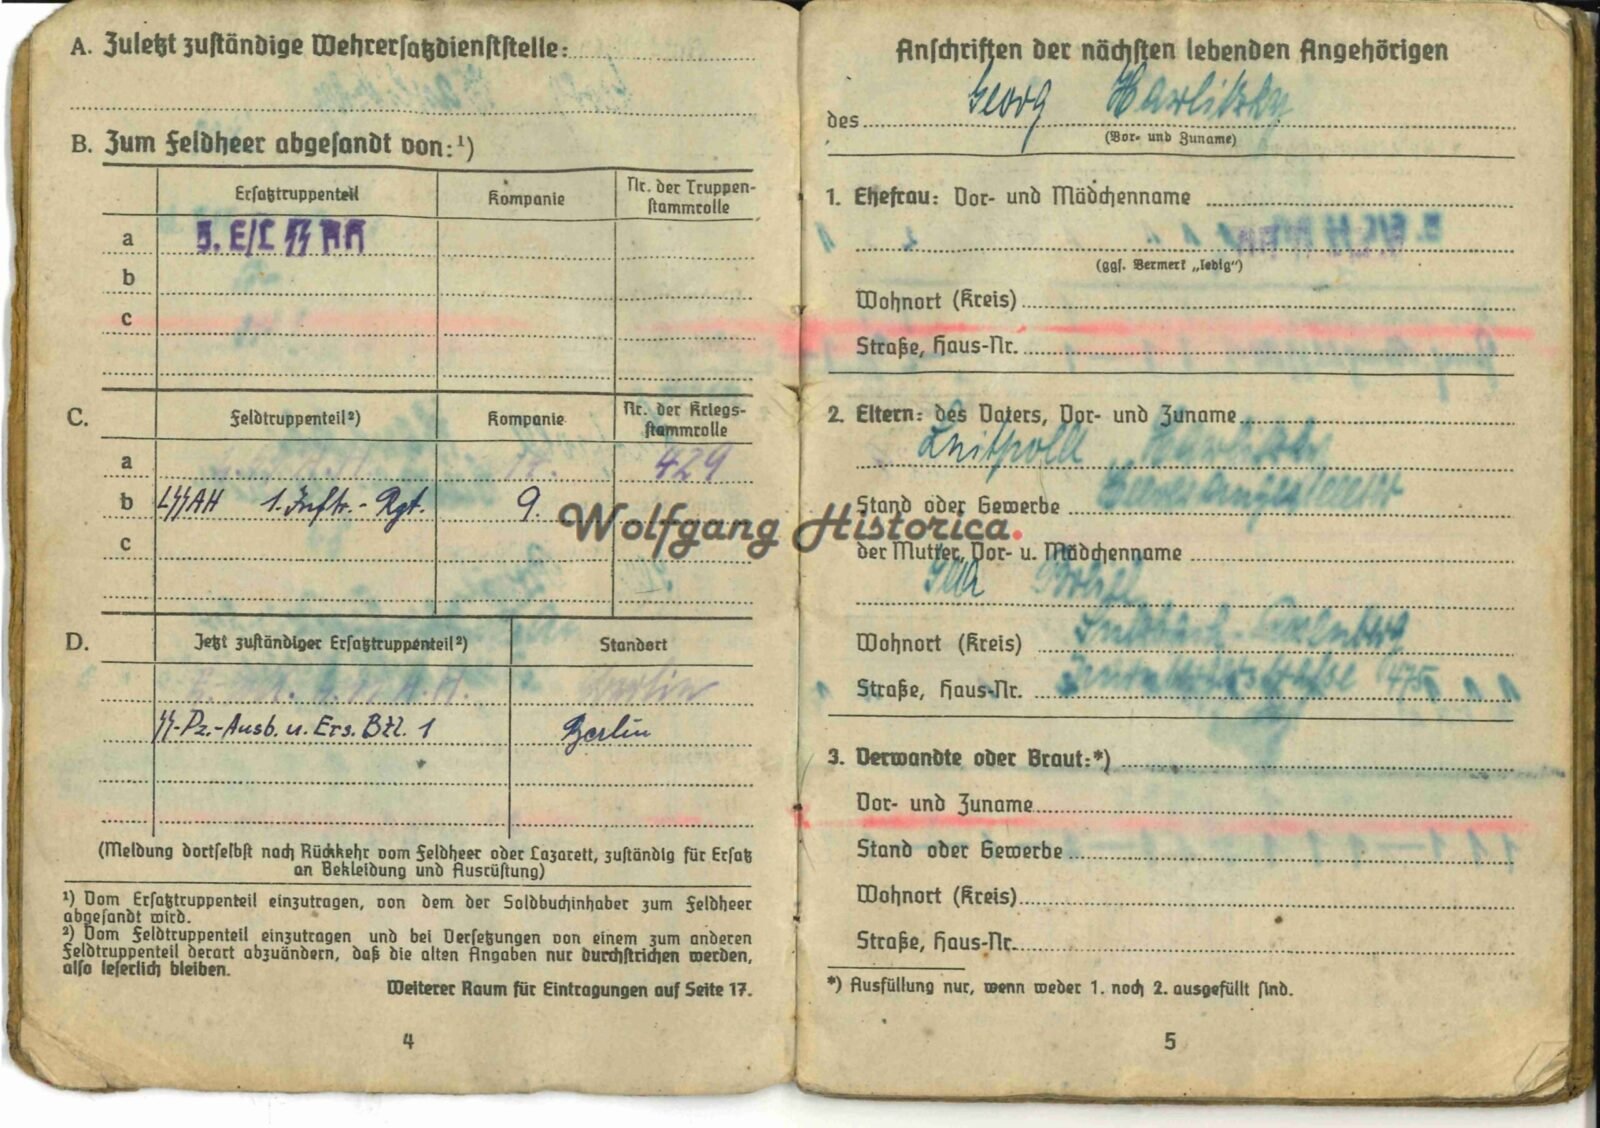 A. Zuletzt zuständige Wehrersatzdienststelle:
B. Zum Feldheer abgesandt von:¹)
Ersatztruppenteil
Kompanie
Nr. der Truppen-
stammrolle
a
b
c
C.
Feldtruppenteil²)
Kompanie
Nr. der Kriegs-
stammrolle
a 429
b LSSAH 1. Inftr.-Rgt. 9.
c
D.
Jetzt zuständiger Ersatztruppenteil²)
Standort
Berlin
SS-Pz.-Ausb. u. Ers. Btl. 1 Berlin
(Meldung dortselbst nach Rückkehr vom Feldheer oder Lazarett, zuständig für Ersatz
an Bekleidung und Ausrüstung)
¹) Vom Ersatztruppenteil einzutragen, von dem der Soldbuchinhaber zum Feldheer
abgesandt wird.
²) Vom Feldtruppenteil einzutragen und bei Versetzungen von einem zum anderen
Feldtruppenteil derart abzuändern, daß die alten Angaben nur durchstrichen werden,
also leserlich bleiben.
Weiterer Raum für Eintragungen auf Seite 17.
4
Anschriften der nächsten lebenden Angehörigen
des Georg Harlitzky
(Vor- und Zuname)
1. Ehefrau: Vor- und Mädchenname
(ggf. Vermerk „ledig“)
Wohnort (Kreis)
Straße, Haus-Nr.
2. Eltern: des Vaters, Vor- und Zuname
Luitpold Harlitzky
Stand oder Gewerbe
der Mutter, Vor- u. Mädchenname
Wohnort (Kreis) Sulzbach-Rosenberg
Straße, Haus-Nr. 475
3. Verwandte oder Braut:*)
Vor- und Zuname
Stand oder Gewerbe
Wohnort (Kreis)
Straße, Haus-Nr.
*) Ausfüllung nur, wenn weder 1. noch 2. ausgefüllt sind.
5
Wolfgang Historica.